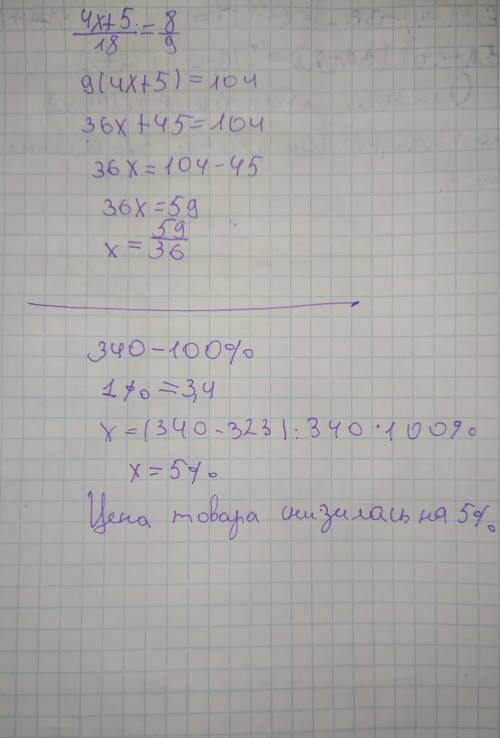 4x+5/18 = 8/9
9(4x+5) = 104
36x + 45 = 104
36x = 104 - 45
36x = 59
x = 59/36
340 - 100%
1% = 3,4
x = (340 - 323) : 340 · 100%
x = 5%
Цена товара снизилась на 5%